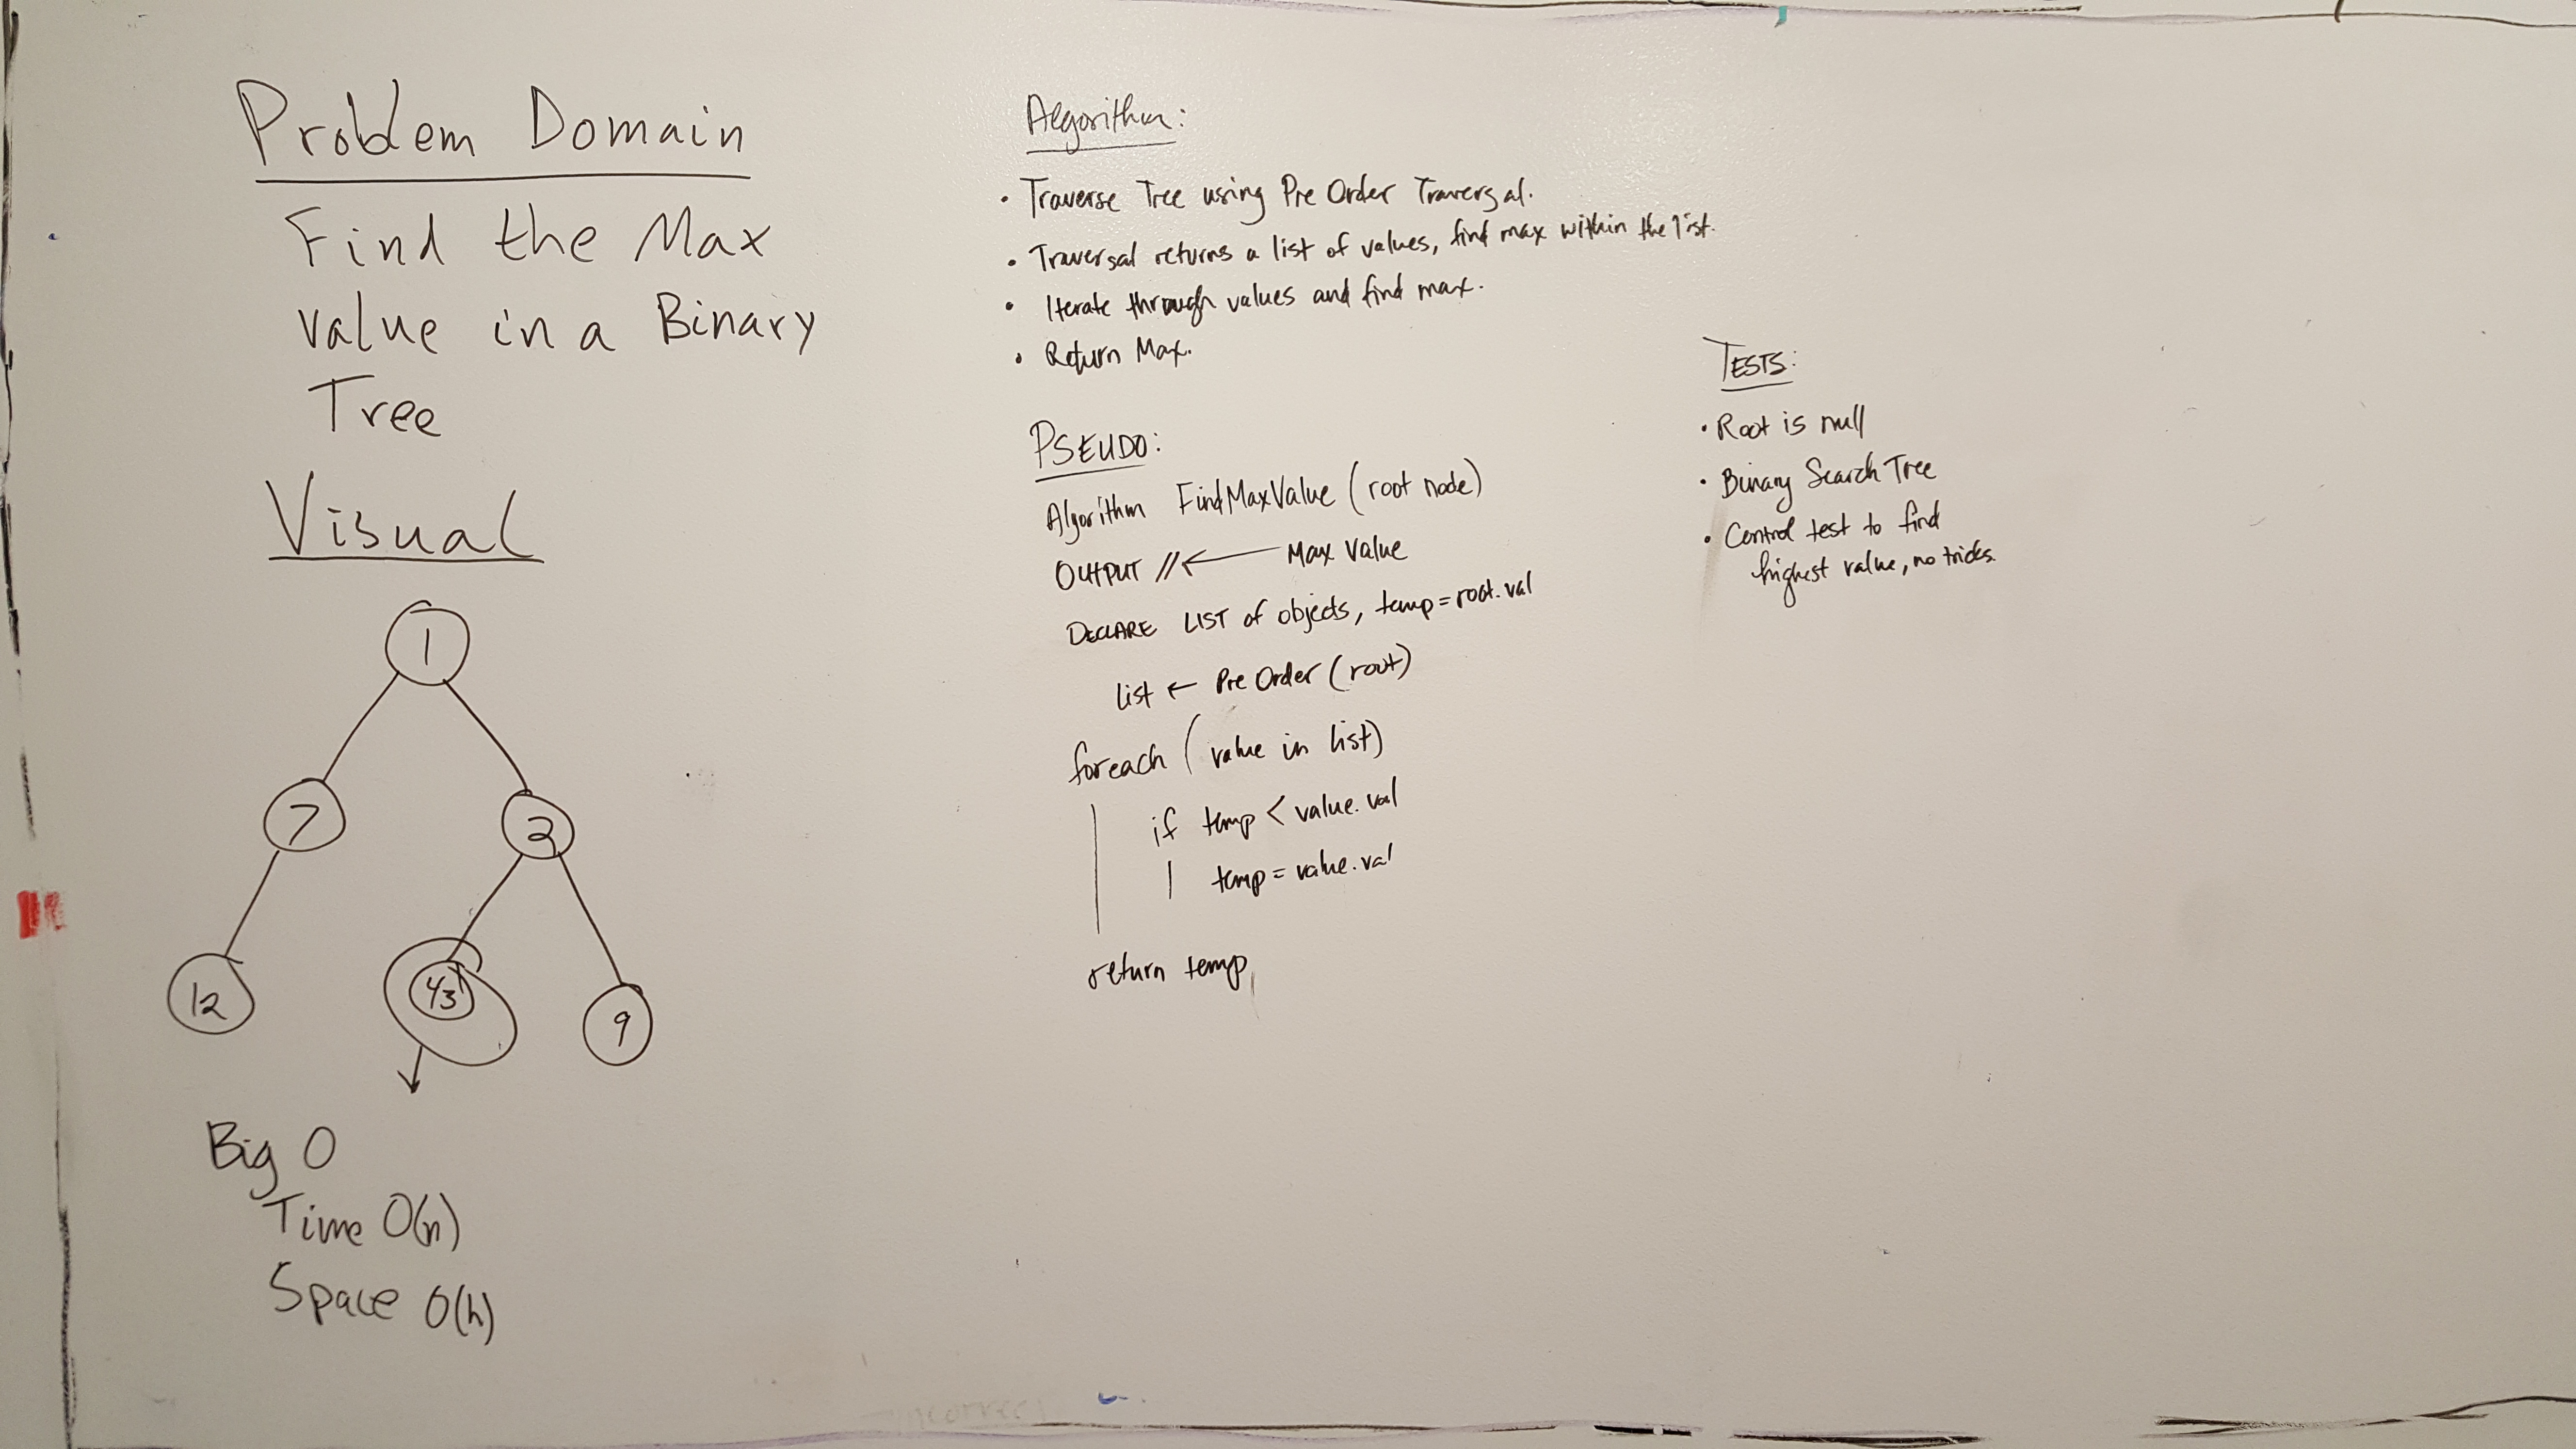 Problem Domain
Find the Max
value in a Binary
Tree
Visual
1
7
2
12
43
9
Big O
Time O(n)
Space O(h)
Algorithm:
• Traverse Tree using Pre Order Traversal.
• Traversal returns a list of values, find max within the list.
• Iterate through values and find max.
• Return Max.
PSEUDO:
Algorithm FindMaxValue (root node)
OUTPUT // ← Max Value
DECLARE LIST of objects, temp = root.val
list ← Pre Order (root)
foreach (value in list)
if temp < value.val
temp = value.val
return temp
TESTS:
• Root is null
• Binary Search Tree
• Control test to find
highest value, no tricks.